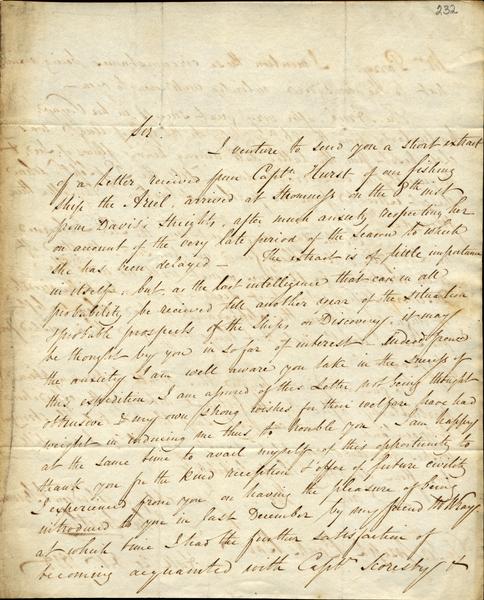 232
Sir.
I venture to send you a short extract
of a Letter received from Captn. Hurst of our fishing
ship the Ariel arrived at Stromness on the 8th inst
from Davis's Streights, after much anxiety respecting her
on account of the very late period of the season to which
she has been delayed — The extract is of little importance
in itself, but as the last intelligence that can in all
probability be received till another year of the situation
& probable prospects of the Ships on Discovery, it may
be thought by you in so far of interest — Indeed from
the anxiety I am well aware you take in the success of
this expedition, I am assured of this Letter not being thought
obtrusive & my own strong wishes for their welfare have had
weight in inducing me thus to trouble you. I am happy
at the same time to avail myself of this opportunity to
thank you for the kind reception & offer of future civility
I experienced from you on having the pleasure of being
introduced to you in last December by my friend
at which time I had the further satisfaction of
becoming acquainted with Captn. Scoresby &